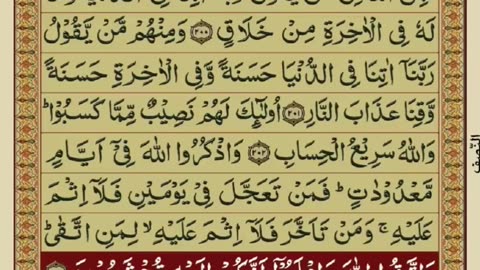 لَهٗ فِي الْاٰخِرَةِ مِنْ خَلَاقٍ ﴿۲۰۰﴾ وَمِنْهُمْ مَّنْ يَّقُوْلُ
رَبَّنَاۤ اٰتِنَا فِي الدُّنْيَا حَسَنَةً وَّفِي الْاٰخِرَةِ حَسَنَةً
وَّقِنَا عَذَابَ النَّارِ ﴿۲۰۱﴾ اُولٰٓئِكَ لَهُمْ نَصِيْبٌ مِّمَّا كَسَبُوْا ؕ
وَاللّٰهُ سَرِيْعُ الْحِسَابِ ﴿۲۰۲﴾ وَاذْكُرُوا اللّٰهَ فِيْۤ اَيَّامٍ
مَّعْدُوْدٰتٍ ؕ فَمَنْ تَعَجَّلَ فِيْ يَوْمَيْنِ فَلَاۤ اِثْمَ
عَلَيْهِ ۚ وَمَنْ تَاَخَّرَ فَلَاۤ اِثْمَ عَلَيْهِ ۙ لِمَنِ اتَّقٰى ؕ
النصف